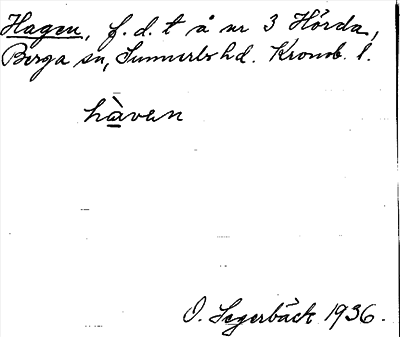 Hagen, f.d. t å nr 3 Hörda,
Berga sn, Sunnerbo hd. Kronob. l.
hàven
O. Segerbäck 1936.